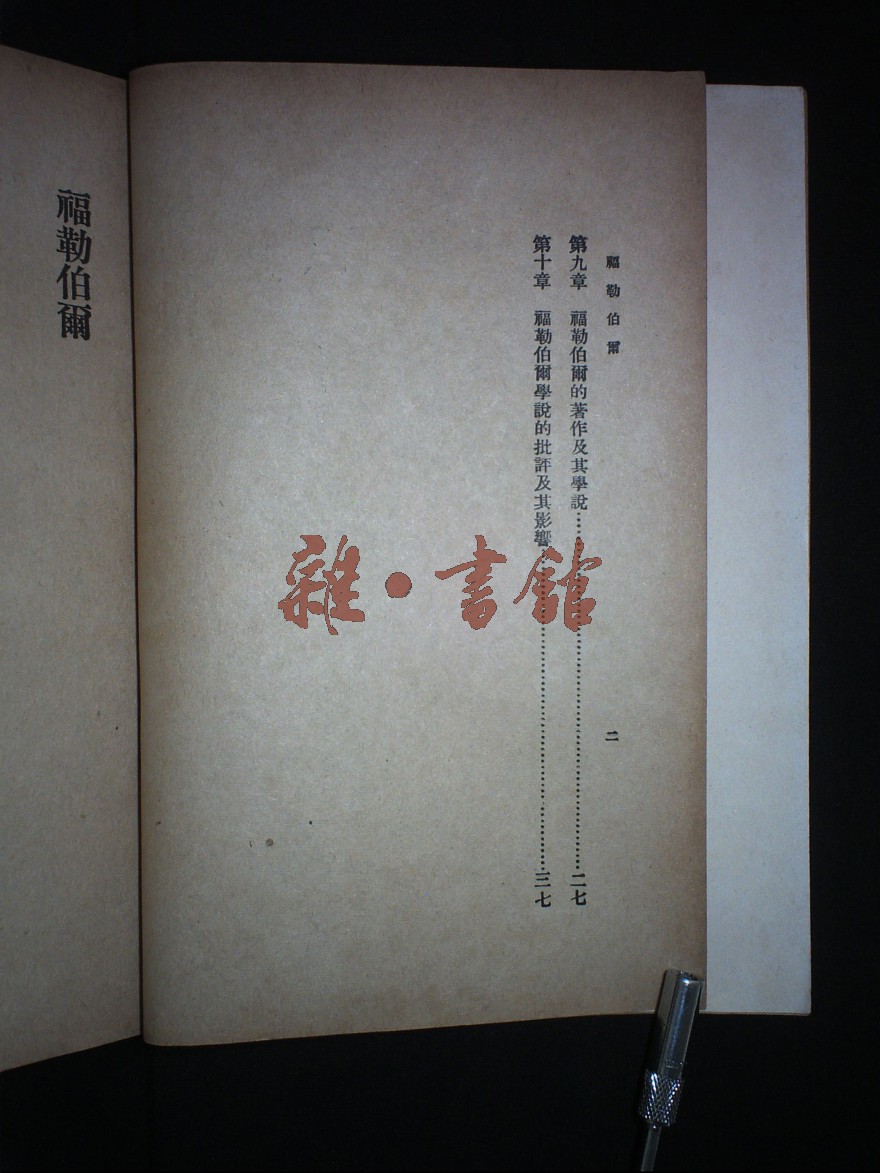 福勒伯爾
二
第九章　福勒伯爾的著作及其學說……二七
第十章　福勒伯爾學說的批評及其影響……三七
福勒伯爾
雜·書館